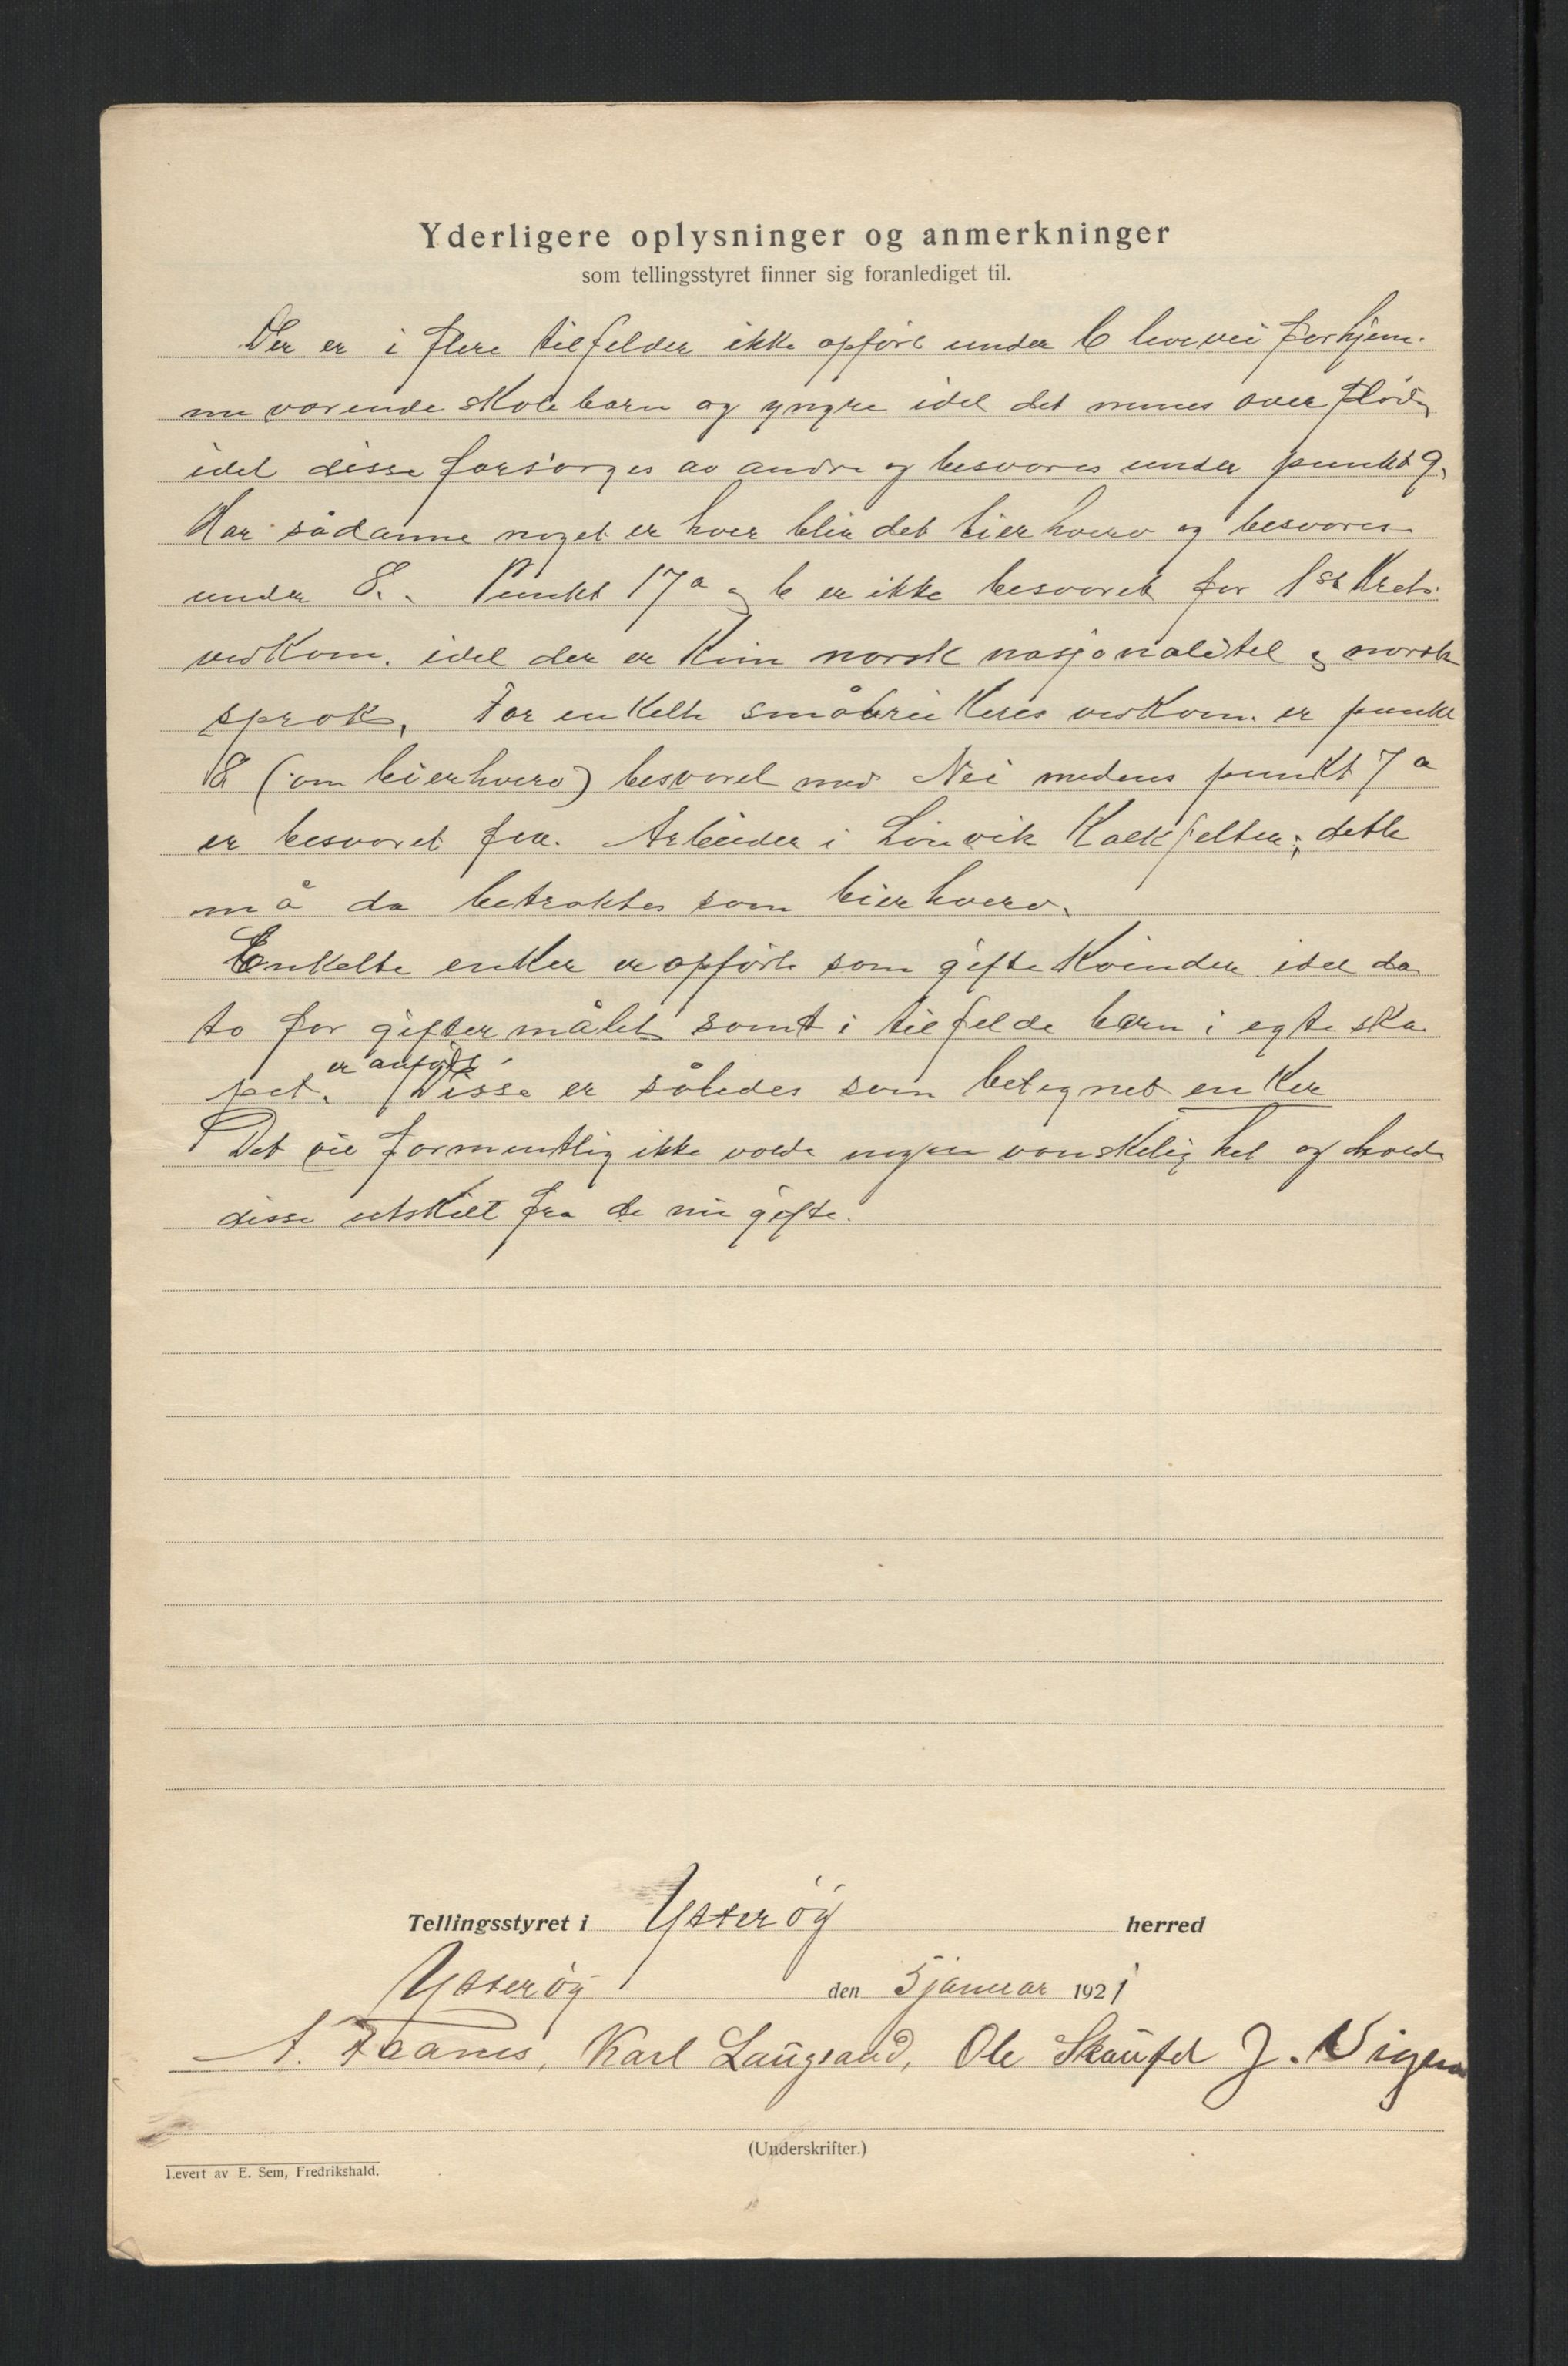 Yderligere oplysninger og anmerkninger
som tellingsstyret finner sig foranlediget til.
Der er i flere tilfelder ikke opført under 6 levevei for hjem.
me værende skolebarn og yngre idet det menes overflødig
idet disse forsørges av andre og besvares under punkt 9.
Har sådanne noget erhver blir det bierhverv og besvares
under 8. Punkt 17a og b er ikke besvaret for 1st Krets
vedkom. idet der er Kun norsk nasjonalitet og norsk
sprok. For enkelte småbrukeres vedkom. er punkt
8 (om bierhverv) besvaret med Nei medens punkt 7a
er besvaret f.ex. Arbeider i Lørvik Kalkfelter; dette
må da betraktes som bierhverv.
Enkelte enker er opført som gifte Kvinder idet da
to for giftermålet samt i tilfelde barn i egteska
er anført
pet. Disse er således som betegnet enker
Det vil formentlig ikke volde nogen vanskelighet og holde
disse utskilt fra de nu gifte.
Tellingsstyret i Ytterøy herred
Ytterøy den 5 januar 1921
A. Faanes, Karl Laugsand, Ole Skaufel J. Vigen
(Underskrifter.)
Levert av E. Sem, Fredrikshald.